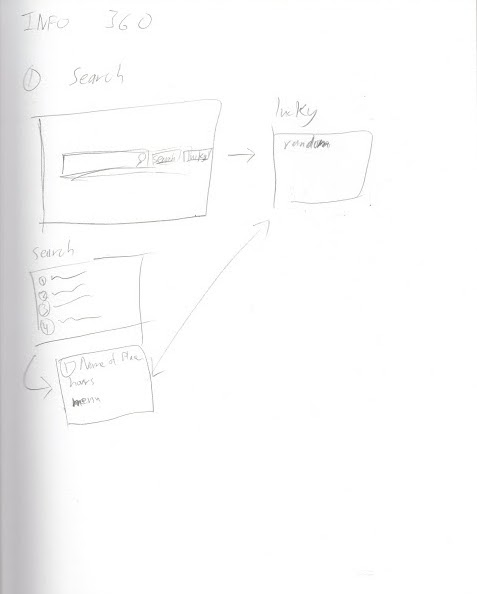 INFO 360
① Search
Search Lucky
lucky
random
Search
①
②
③
④
① Name of Place
hours
menu